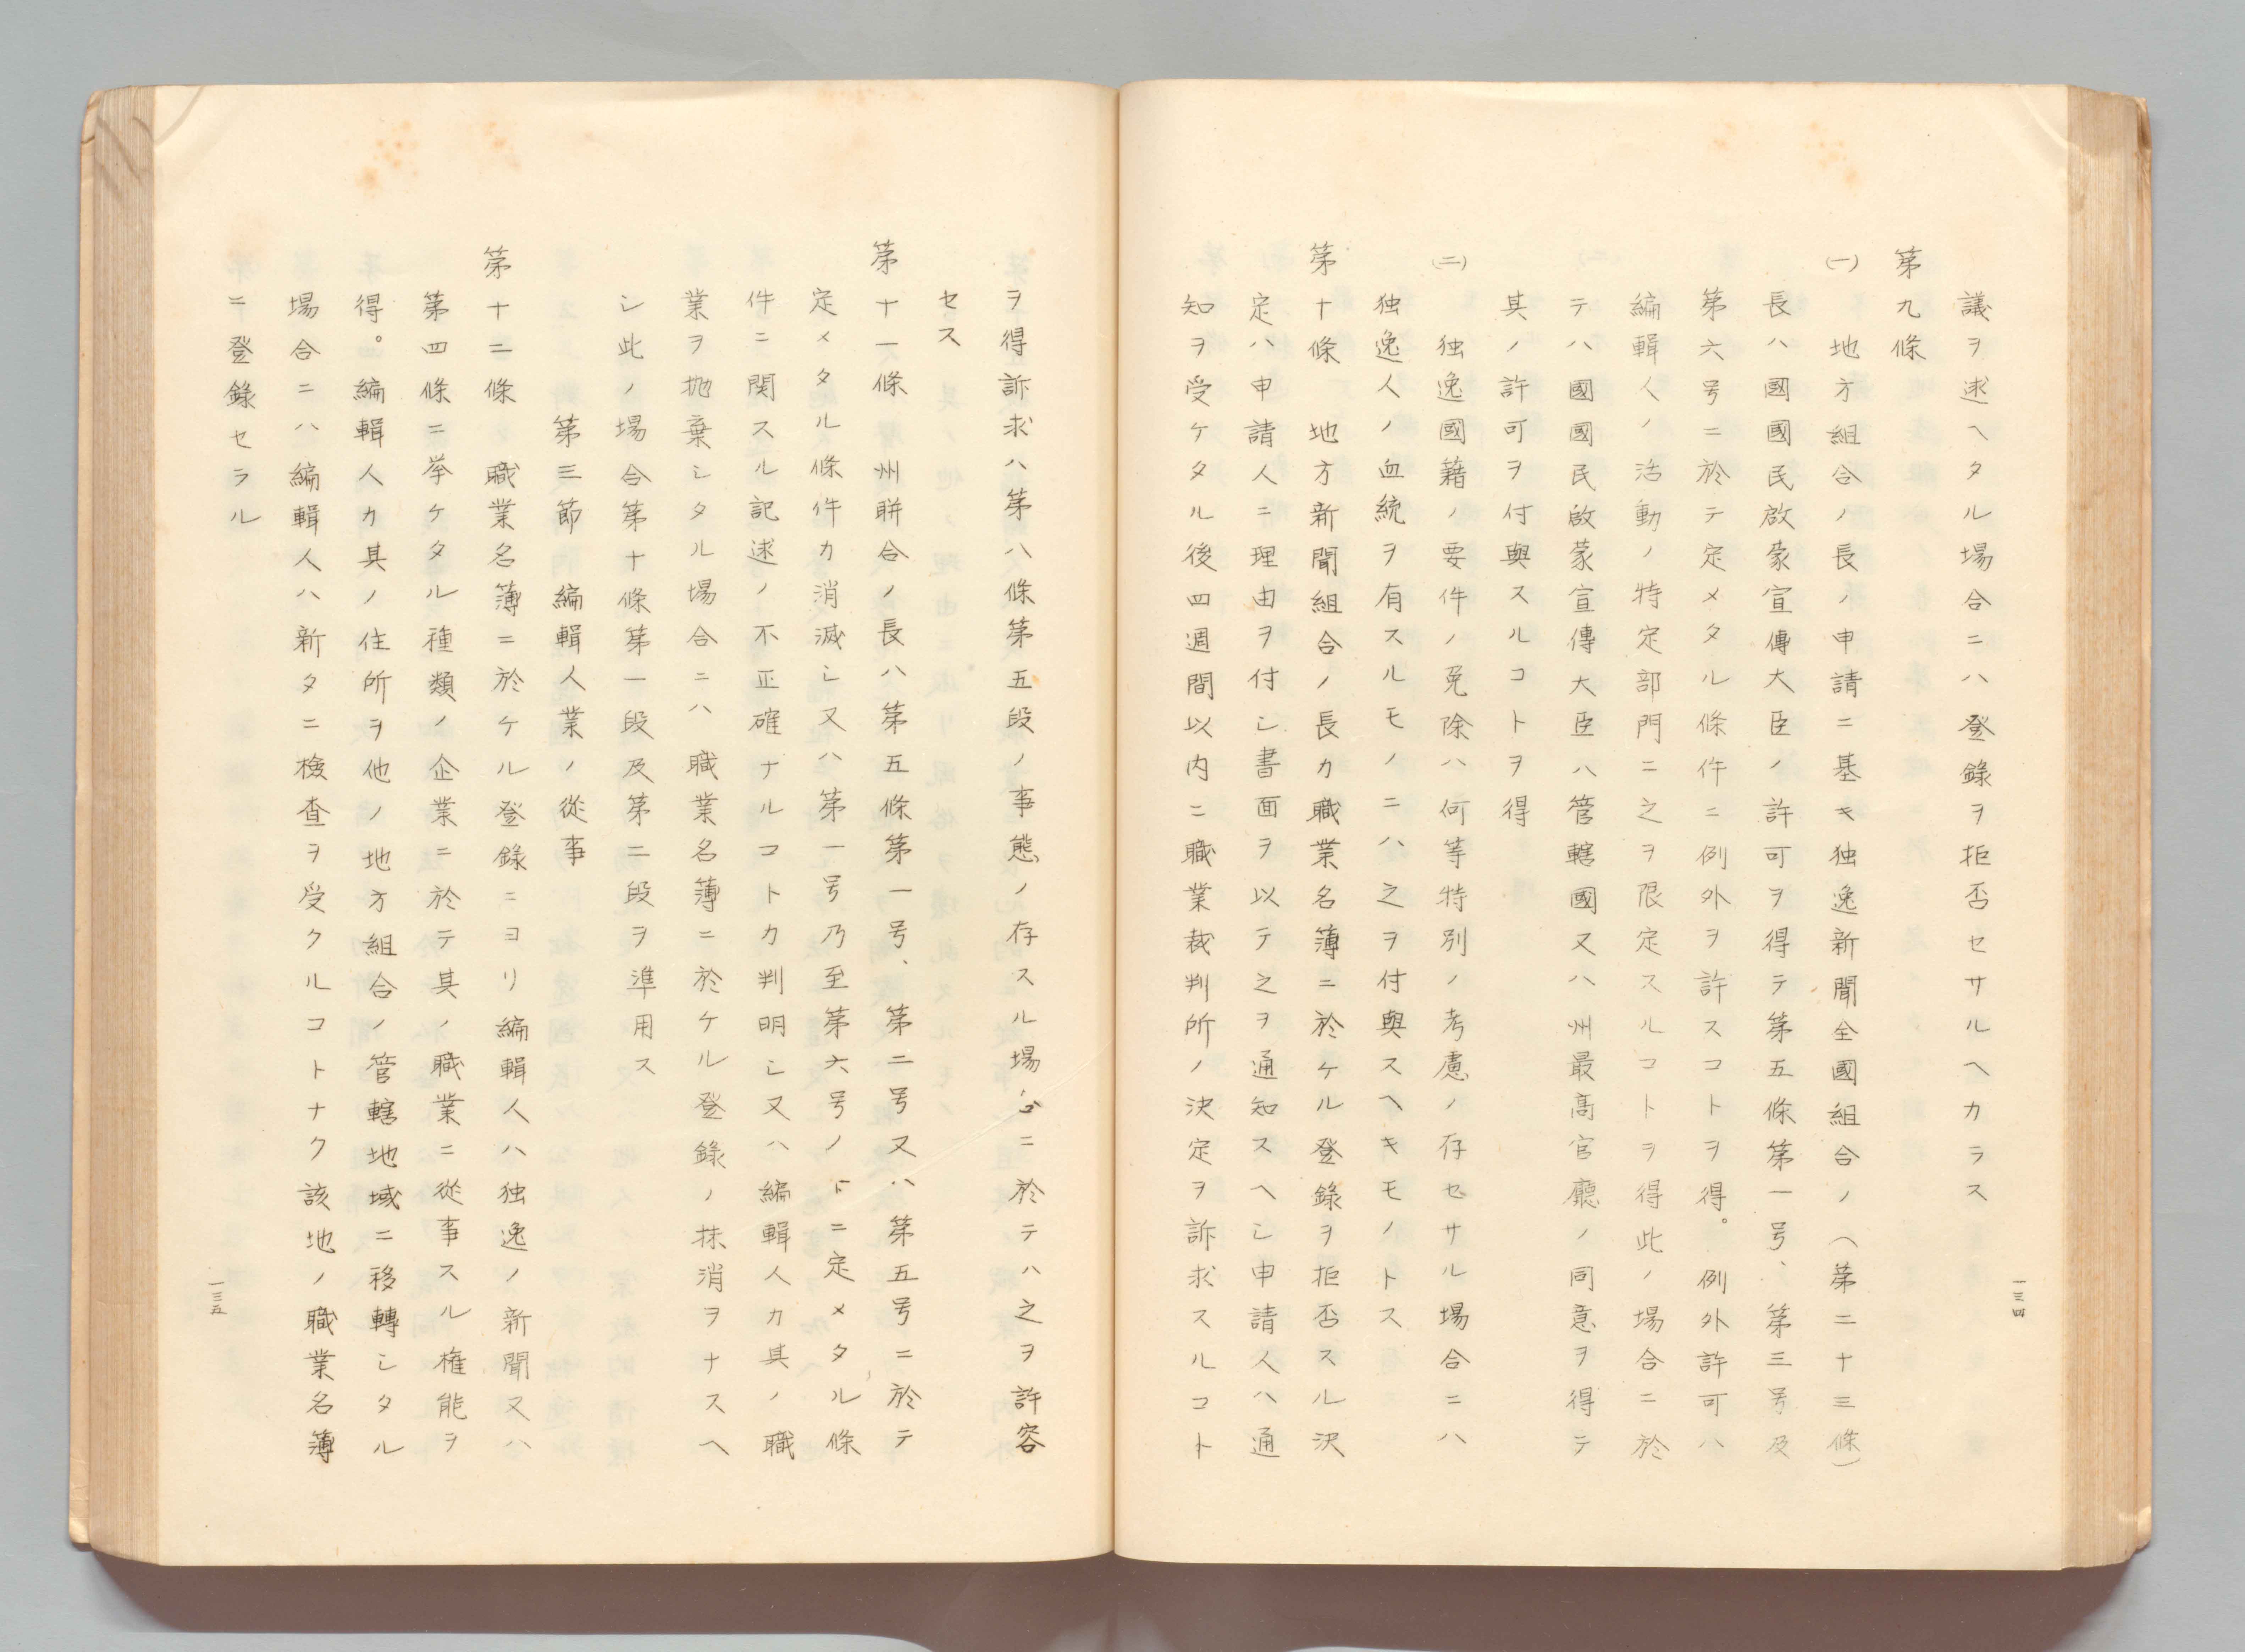 議ヲ述ヘタル場合ニハ登錄ヲ拒否セサルヘカラス
第九條
(一) 地方組合ノ長ノ申請ニ基キ独逸新聞全國組合ノ(第二十三條)
長ハ國國民啟蒙宣傳大臣ノ許可ヲ得テ第五條第一号、第三号及
第六号ニ於テ定メタル條件ニ例外ヲ許スコトヲ得。例外許可ハ
編輯人ノ活動ノ特定部門ニ之ヲ限定スルコトヲ得此ノ場合ニ於
テハ國國民啟蒙宣傳大臣ハ管轄國又ハ州最高官廳ノ同意ヲ得テ
其ノ許可ヲ付與スルコトヲ得
(二) 独逸國籍ノ要件ノ免除ハ何等特別ノ考慮ノ存セサル場合ニハ
独逸人ノ血統ヲ有スルモノニハ之ヲ付與スヘキモノトス
第十條 地方新聞組合ノ長カ職業名簿ニ於ケル登錄ヲ拒否スル決
定ハ申請人ニ理由ヲ付シ書面ヲ以テ之ヲ通知スヘシ申請人ハ通
知ヲ受ケタル後四週間以内ニ職業裁判所ノ決定ヲ訴求スルコト
一三四
ヲ得訴求ハ第八條第五段ノ事態ノ存スル場合ニ於テハ之ヲ許容
セス
第十一條 州聨合ノ長ハ第五條第一号、第二号又ハ第五号ニ於テ
定メタル條件カ消滅シ又ハ第一号乃至第六号ノ下ニ定メタル條
件ニ関スル記述ノ不正確ナルコトカ判明シ又ハ編輯人カ其ノ職
業ヲ抛棄シタル場合ニハ職業名簿ニ於ケル登錄ノ抹消ヲナスヘ
シ此ノ場合第十條第一段及第二段ヲ準用ス
第三節 編輯人業ノ從事
第十二條 職業名簿ニ於ケル登錄ニヨリ編輯人ハ独逸ノ新聞又ハ
第四條ニ挙ケタル種類ノ企業ニ於テ其ノ職業ニ從事スル権能ヲ
得。編輯人カ其ノ住所ヲ他ノ地方組合ノ管轄地域ニ移轉シタル
場合ニハ編輯人ハ新タニ檢査ヲ受クルコトナク該地ノ職業名簿
ニ登錄セラル
一三五